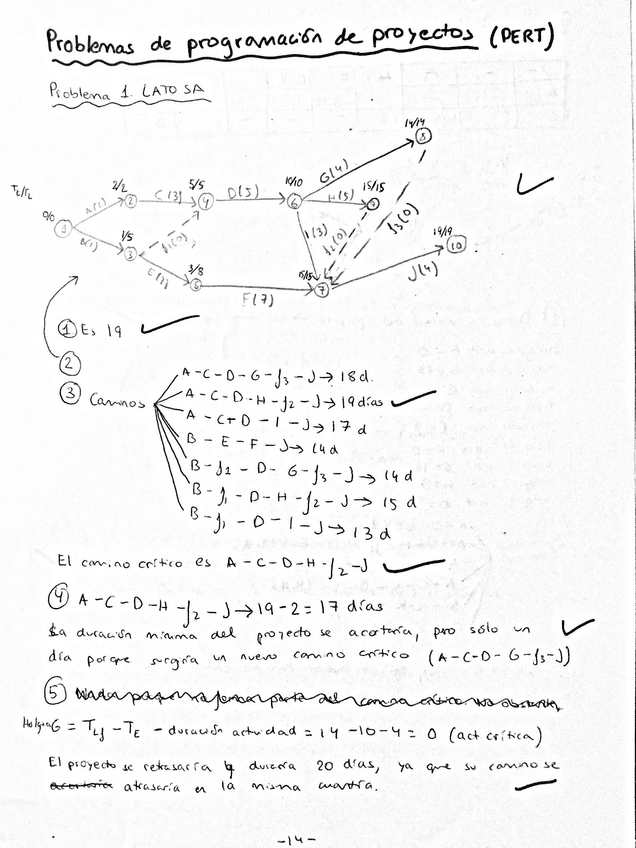 Problemas de programación de proyectos (PERT)
Problema 1. LATO SA
14/14
8
G(4)
2/2
5/5
10/10
15/15
A(2)
2
C(3)
4
D(5)
6
H(5)
9
0/0
1
f1(0)
I(3)
f2(0)
f3(0)
19/19
10
B(1)
1/5
3
E(2)
3/8
5
F(7)
15/15
7
J(4)
1 Es 19
2
3 Caminos
A-C-D-G-f3-J→18d.
A-C-D-H-f2-J→19días
A-C-D-I-J→17d
B-E-F-J→14d
B-f1-D-G-f3-J→14d
B-f1-D-H-f2-J→15d
B-f1-D-I-J→13d
El camino crítico es A-C-D-H-f2-J
4 A-C-D-H-f2-J→19-2=17 días
La duración mínima del proyecto se acortaría, pero sólo un
día porque surgiría un nuevo camino crítico (A-C-D-G-f3-J)
5
Holgura G = TLj - TE - duración actividad = 14-10-4=0 (act crítica)
El proyecto se retrasaría y duraría 20 días, ya que su camino se
atrasaría en la misma cuantía.
-14-